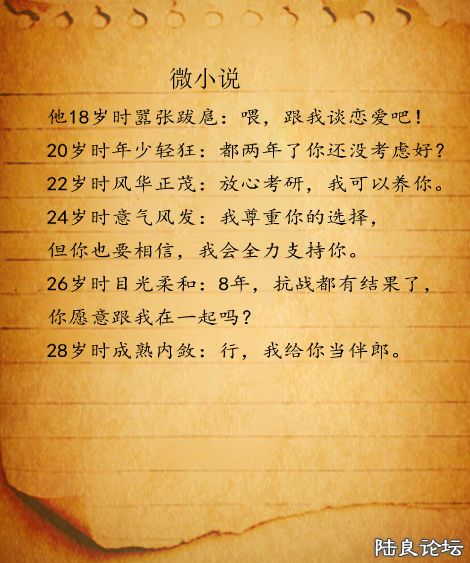 微小说
他18岁时嚣张跋扈：喂，跟我谈恋爱吧！
20岁时年少轻狂：都两年了你还没考虑好？
22岁时风华正茂：放心考研，我可以养你。
24岁时意气风发：我尊重你的选择，
但你也要相信，我会全力支持你。
26岁时目光柔和：8年，抗战都有结果了，
你愿意跟我在一起吗？
28岁时成熟内敛：行，我给你当伴郎。
陆良论坛